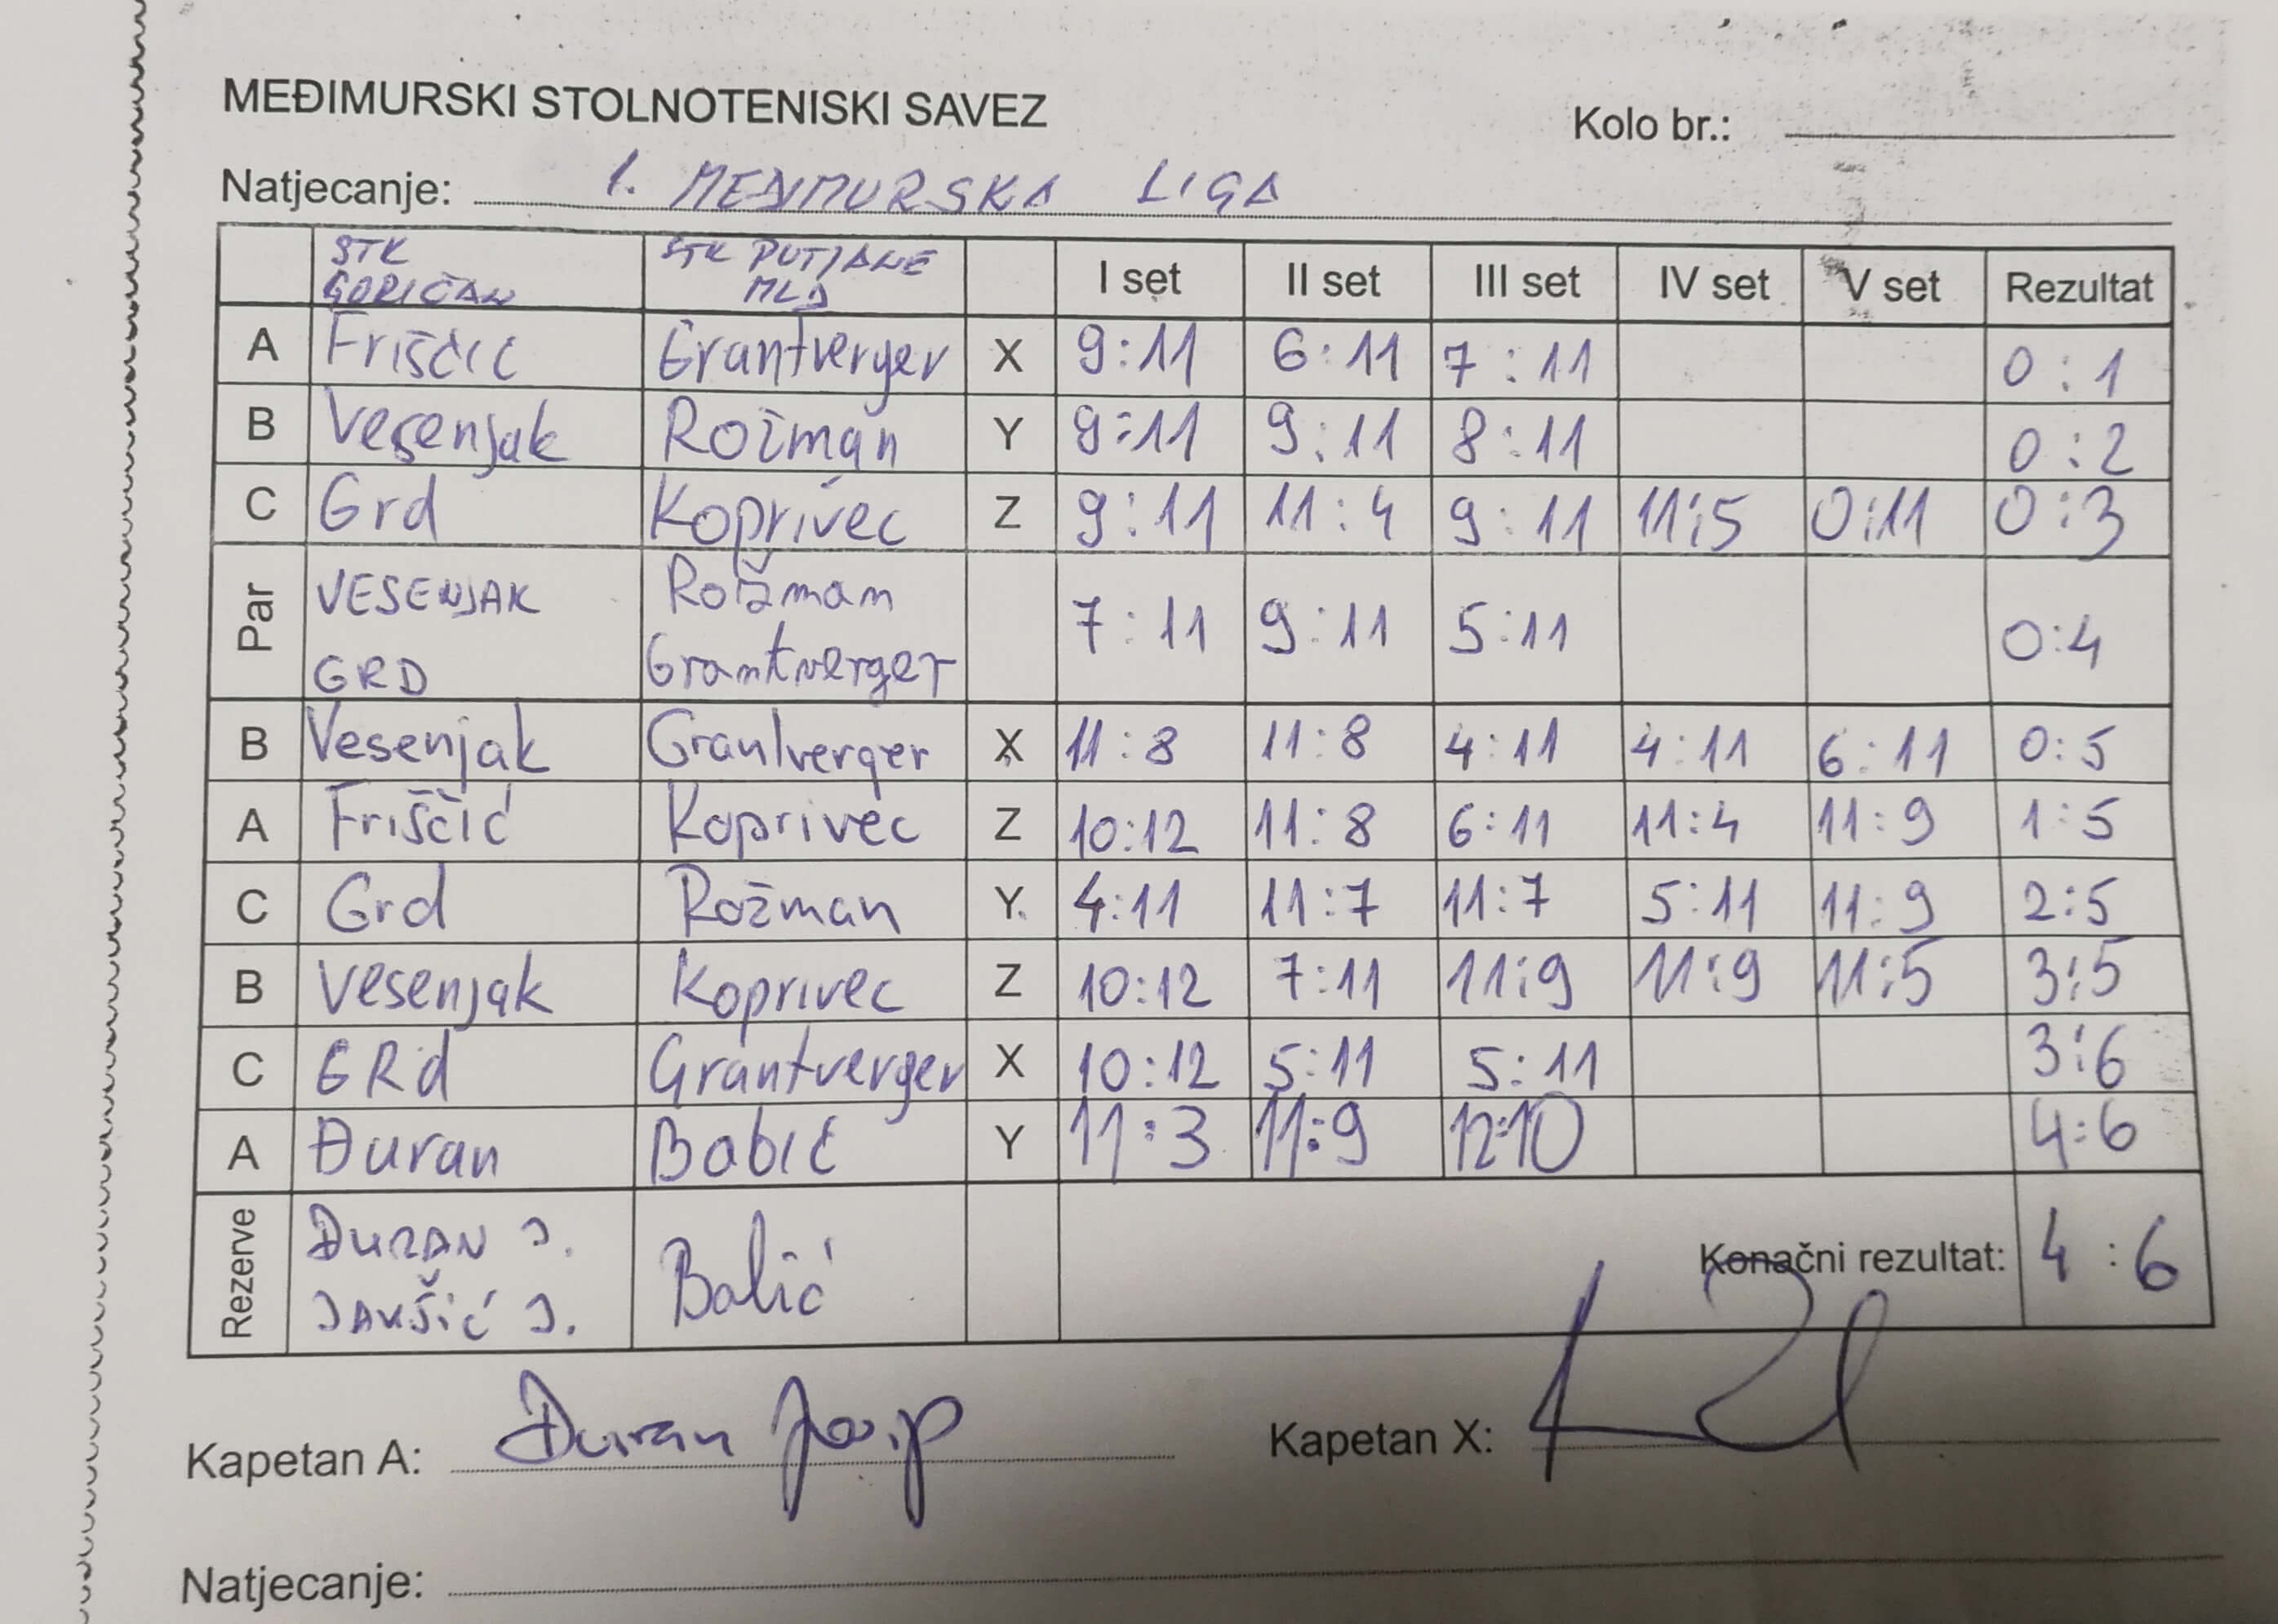 MEĐIMURSKI STOLNOTENISKI SAVEZ
Kolo br.:
Natjecanje: 1. MEĐIMURSKA LIGA
STK GORIČAN STK PUTJANE MLA I set II set III set IV set V set Rezultat
A Friščić Grantverger X 9:11 6:11 7:11 0:1
B Vesenjak Rožman Y 9:11 9:11 8:11 0:2
C Grd Koprivec Z 9:11 11:4 9:11 11:5 0:11 0:3
Par VESENJAK Rožman 7:11 9:11 5:11 0:4
GRD Grantverger
B Vesenjak Grantverger X 11:8 11:8 4:11 4:11 6:11 0:5
A Friščić Koprivec Z 10:12 11:8 6:11 11:4 11:9 1:5
C Grd Rožman Y 4:11 11:7 11:7 5:11 11:9 2:5
B Vesenjak Koprivec Z 10:12 7:11 11:9 11:9 11:5 3:5
C GRd Grantverger X 10:12 5:11 5:11 3:6
A Đuran Babić Y 11:3 11:9 12:10 4:6
Rezerve ĐURAN J. Babić Konačni rezultat: 4:6
JAKŠIĆ J.
Kapetan A: Đuran Josip Kapetan X:
Natjecanje: